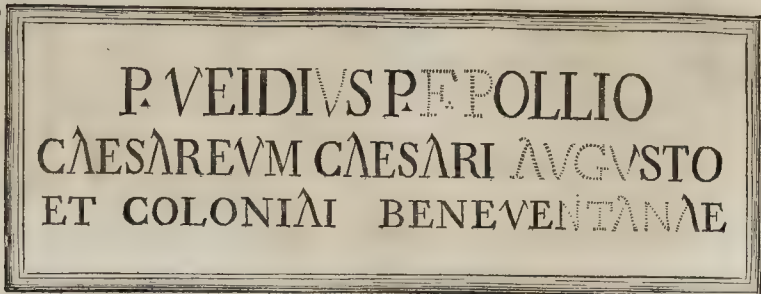 P. VEIDIVS P. F POLLIO
CAESAREVM CAESARI AVGVSTO
ET COLONIAI BENEVENTANAE